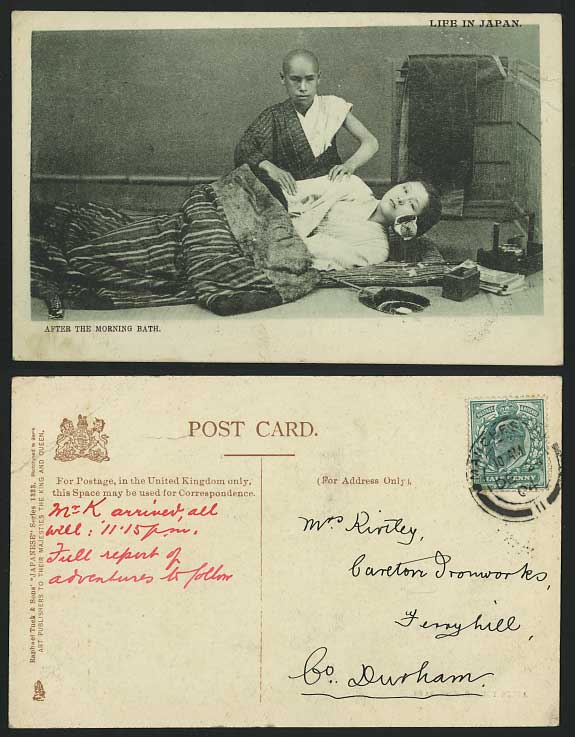 LIFE IN JAPAN.
AFTER THE MORNING BATH.
POST CARD.
For Postage, in the United Kingdom only,
this Space may be used for Correspondence.
(For Address Only).
Mr K arrived, all
well: 11.15 p.m.
Full report of
adventures to follow
Mrs Kirtley,
Carlton Ironworks,
Ferryhill,
Co. Durham.
Raphael Tuck & Sons' "JAPANESE" Series 1333.
ART PUBLISHERS TO THEIR MAJESTIES THE KING AND QUEEN.
HALFPENNY